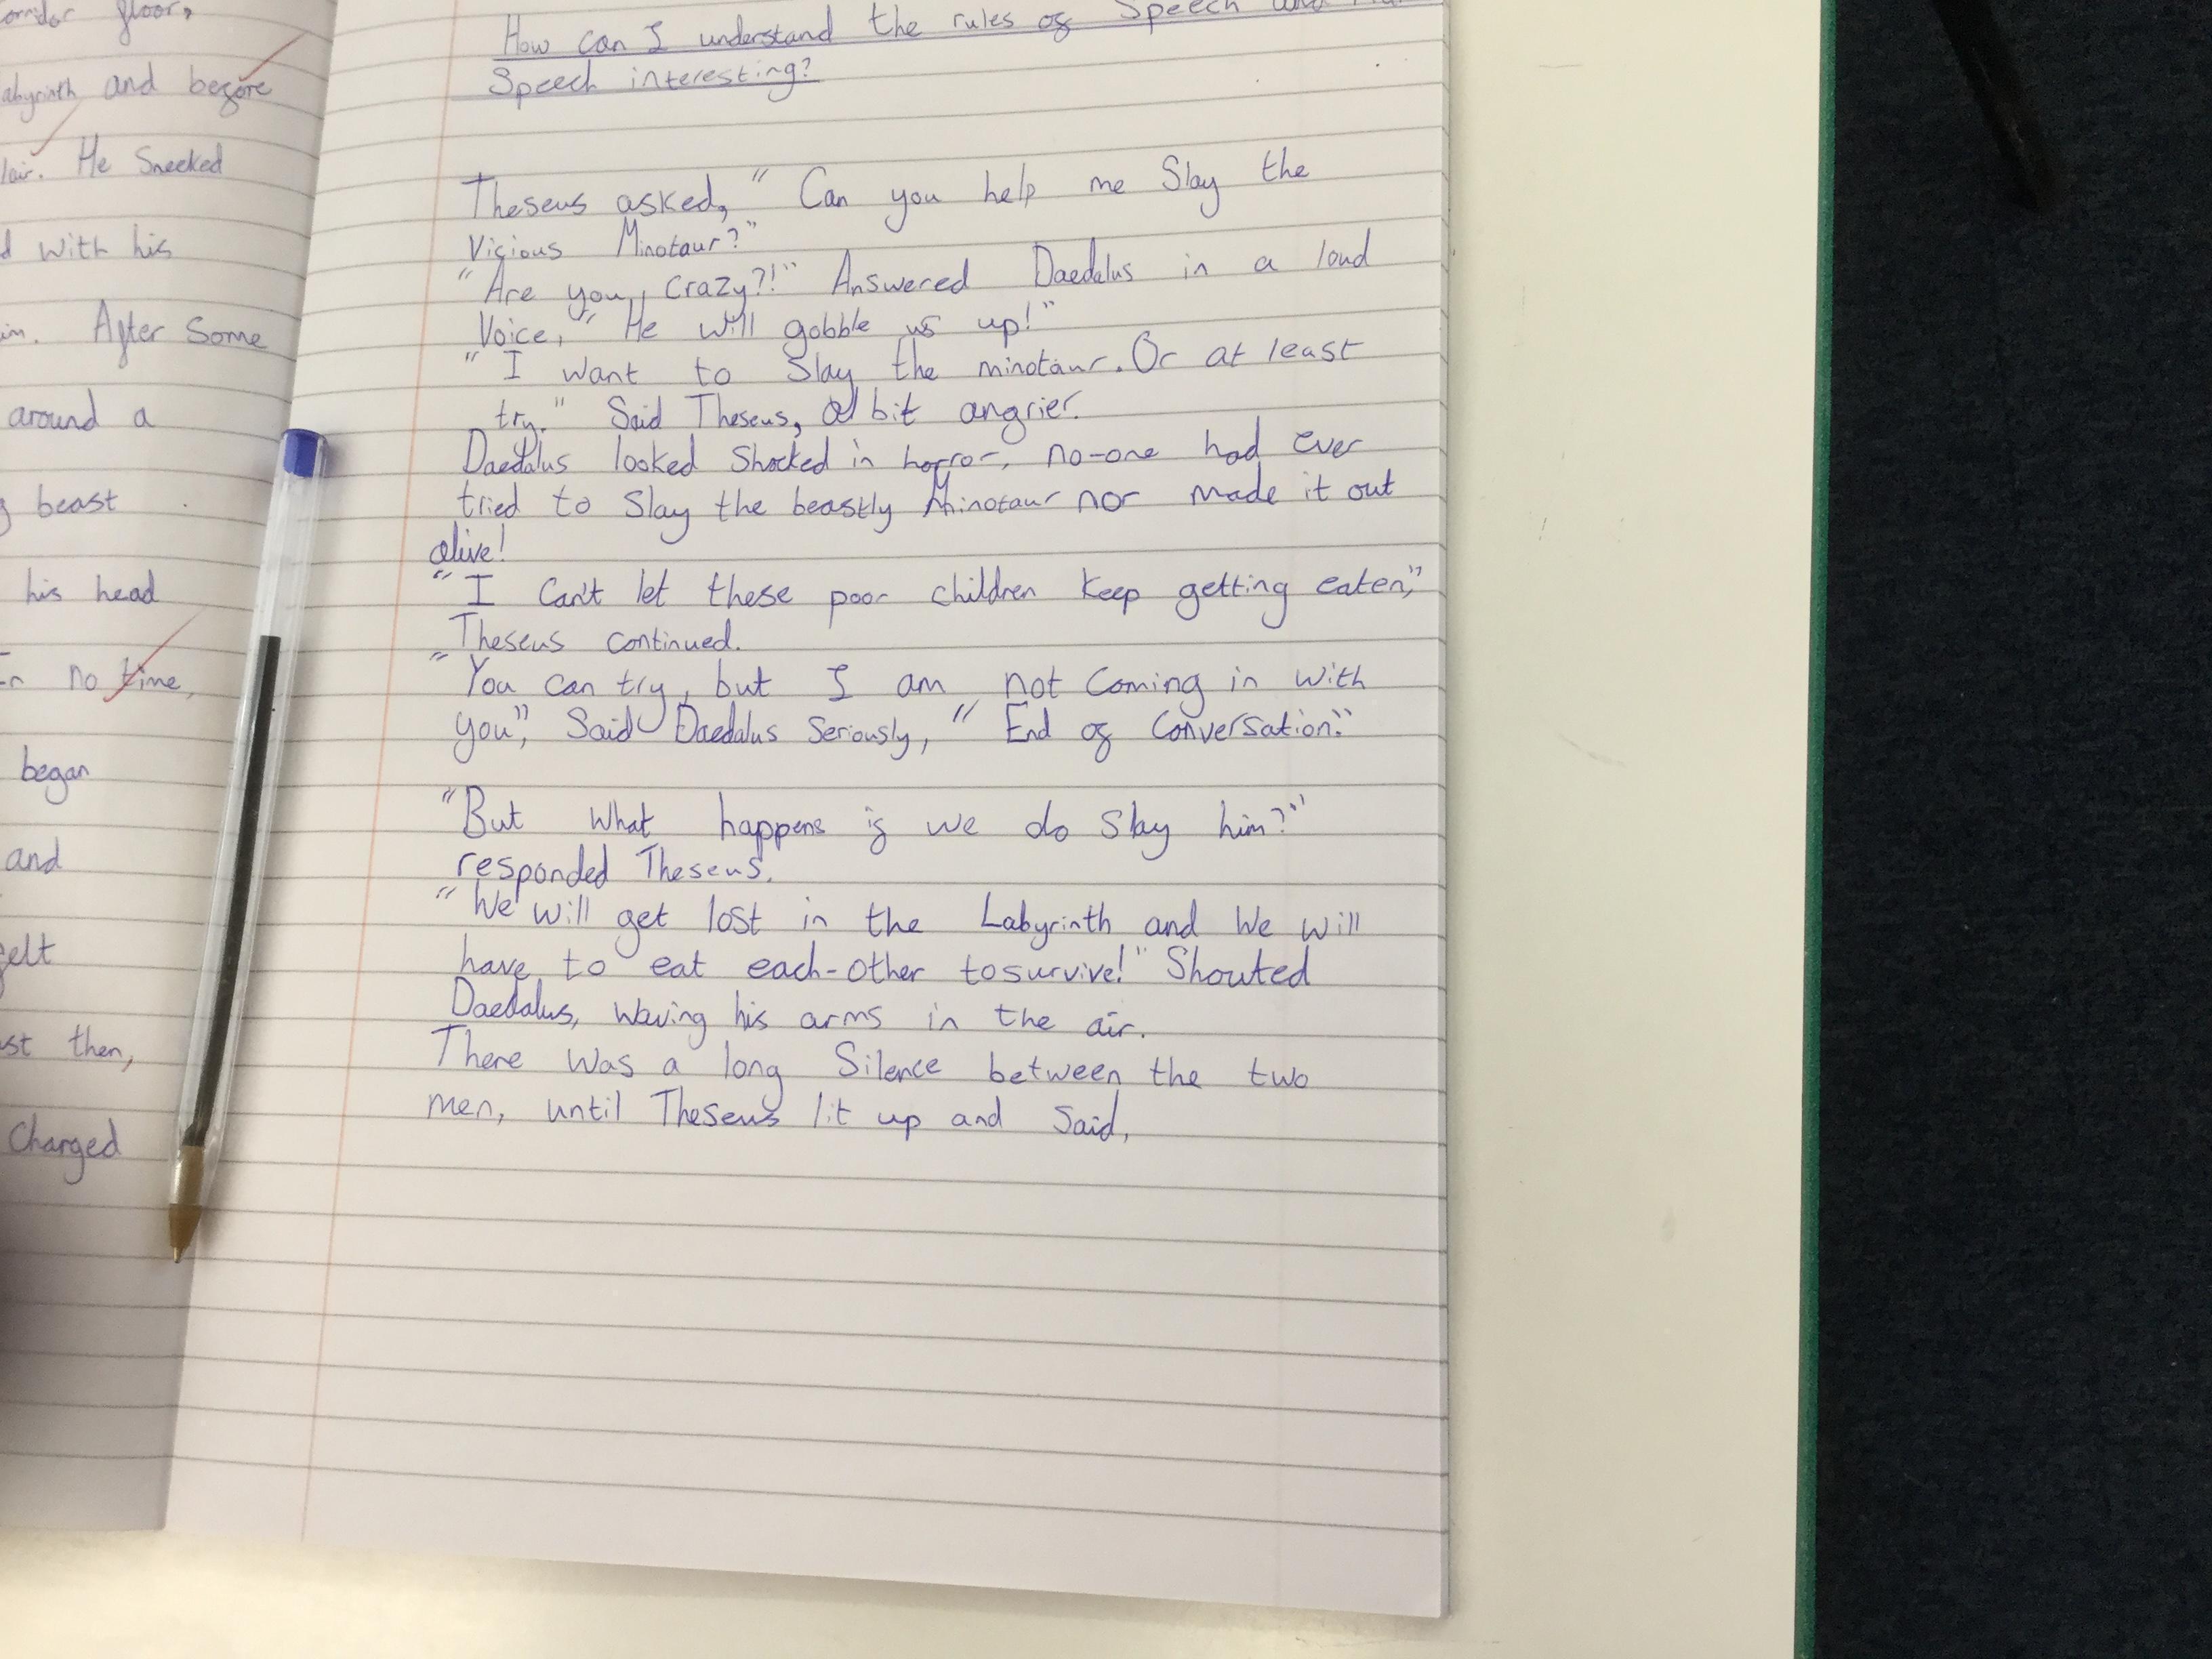 corridor floor,
Labyrinth and before
lair. He Sneeked
d with his
im. After Some
around a
g beast
his head
In no time,
began
and
felt
ust then,
Charged
How can I understand the rules of Speech and
Speech interesting?
Theseus asked, "Can you help me Slay the
Vicious Minotaur?"
"Are you, crazy?!" Answered Daedalus in a loud
Voice, "He will gobble us up!"
"I want to Slay the minotaur. Or at least
try." Said Theseus, a bit angrier.
Daedalus looked Shocked in horror, no-one had ever
tried to Slay the beastly Minotaur nor made it out
alive!
"I Can't let these poor children Keep getting eaten,"
Theseus continued.
"You can try, but I am not Coming in with
you", Said Daedalus Seriously, "End of Conversation."
"But What happens if we do Slay him?"
responded Theseus.
"We will get lost in the Labyrinth and We will
have to eat each-other to survive!" Shouted
Daedalus, Waving his arms in the air.
There Was a long Silence between the two
men, until Theseus lit up and Said,